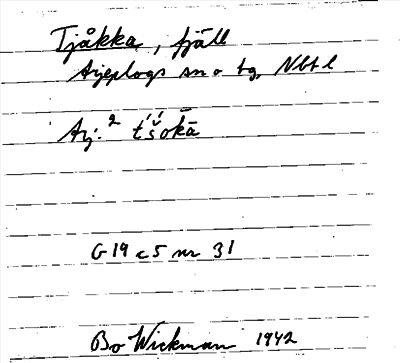 Tjåkka, fjäll
Arjeplogs sn o tg, Nbtl
Arj.² t́š́okā
G 19 c 5 nr 31
Bo Wickman 1942